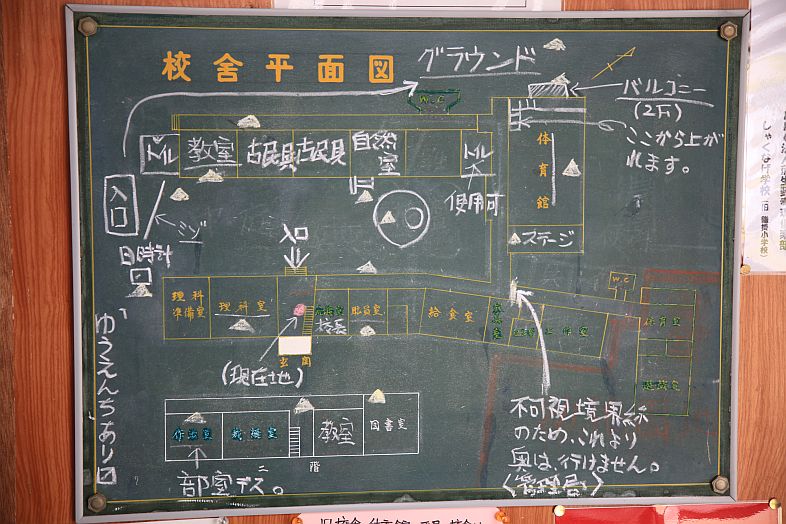 校舎平面図
グラウンド
バルコニー
(2F)
ここから上が
れます。
W.C
トイレ
教室
古民具
古民具
自然
室
トイレ
使用可
体育館
ステージ
入口
ミゾ
日時計
入口
理科
準備室
理科室
校長
職員室
給食室
W.C
保育室
玄関
(現在地)
ゆうえんちあり
作法室
裁縫室
教室
図書室
二階
部室デス。
不可視境界線
のため、これより
奥は、行けません。
(管理局)
しゃくなげ学校